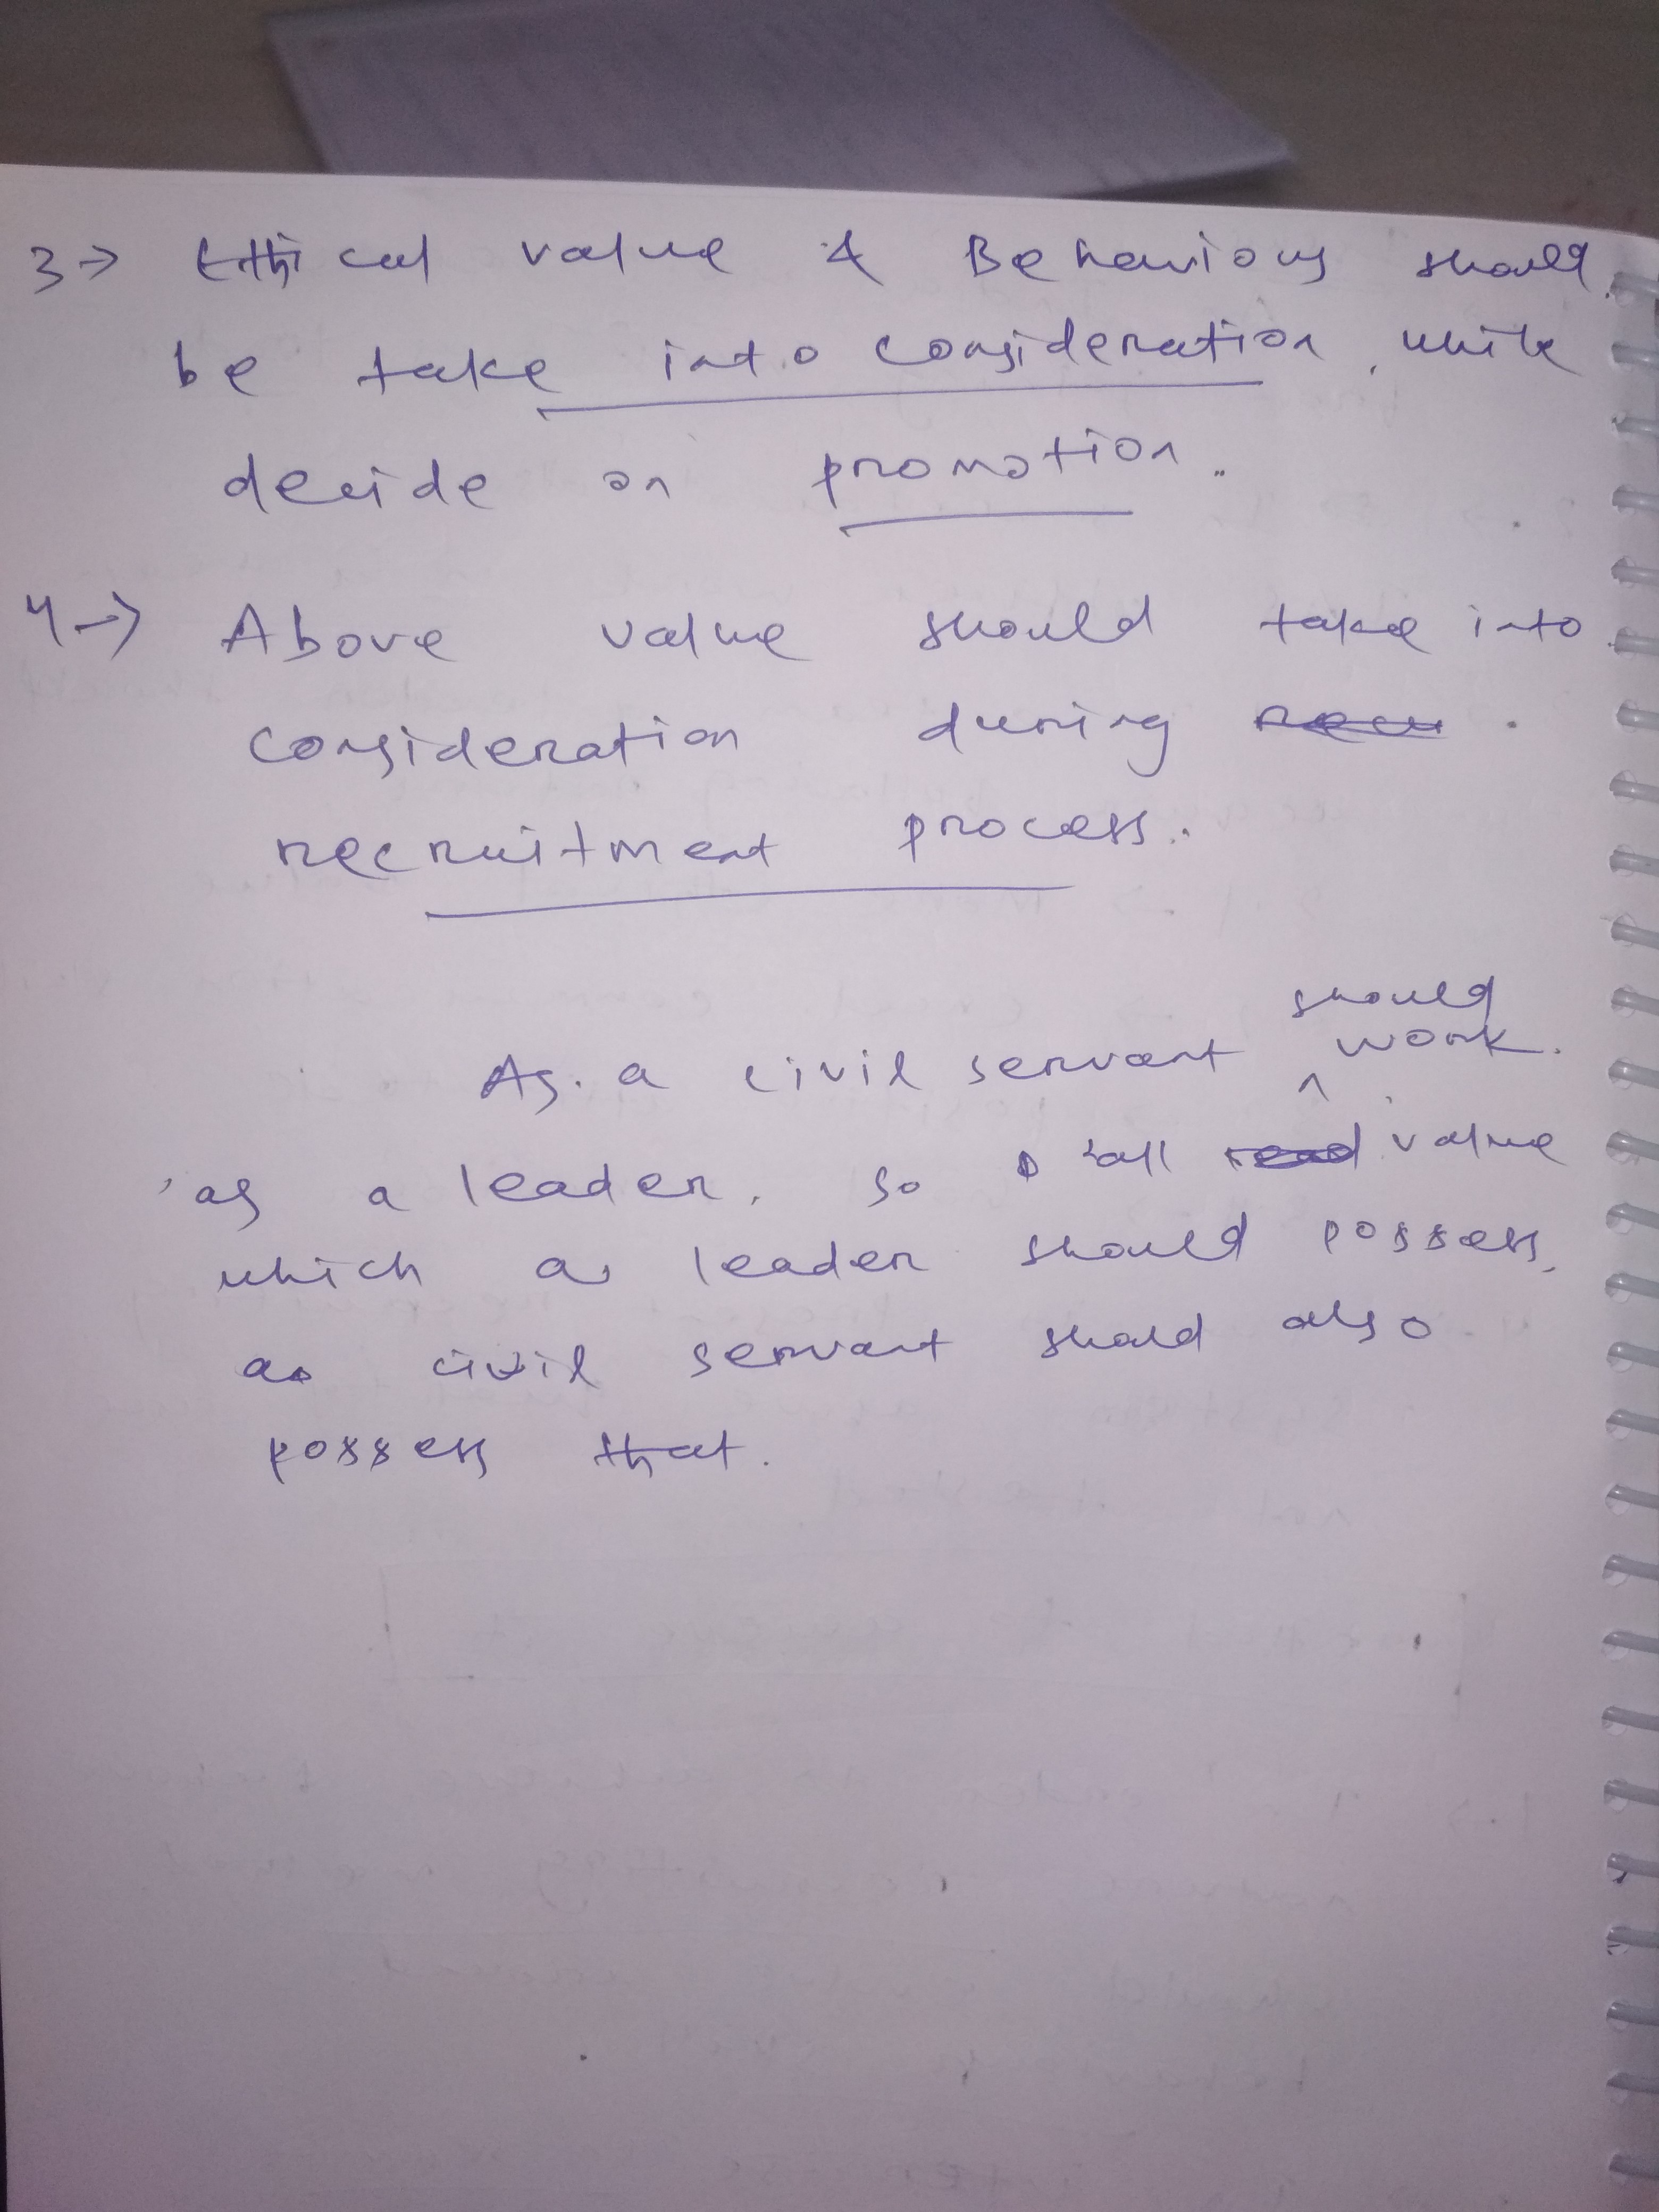 3→ Ethical value & Behaviour should
be take into consideration, while
decide on promotion.
4→ Above value should take into
consideration during
recruitment process.
should
As a civil servant ^ work.
as a leader, so all value
which a leader should possess,
a civil servant should also
possess that.